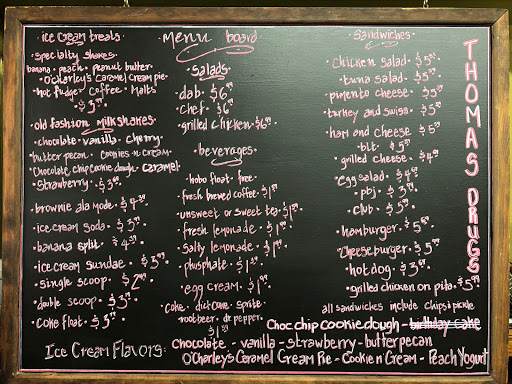 Menu board
ice cream treats
specialty shakes
banana • peach • peanut butter
O'Charley's Caramel Cream Pie
hot fudge • coffee • malts
• $3.99 •
old fashion milkshakes
• chocolate • vanilla • cherry •
butter pecan • cookies n cream •
Chocolate chip Cookie dough • Caramel
• Strawberry • $3.99 •
• brownie ala mode • $4.39
• ice cream soda • $3.99
• banana split • $4.39
• ice cream sundae • $3.99
• single scoop • $2.99 •
• double scoop • $3.99 •
• coke float • $3.99
Salads
• dab • $6.99
• chef • $6.99
• grilled chicken • $6.99
beverages
• hobo float • free •
• fresh brewed coffee • $1.59
• unsweet or sweet tea • $1.59
• fresh lemonade • $1.99 •
• salty lemonade • $1.99 •
• phosphate • $1.59
• egg cream • $1.99
• coke • diet coke • sprite •
• root beer • dr. pepper •
• $1.59
Sandwiches
Chicken salad • $5.99
• tuna salad • $5.99
• pimento cheese • $5.99
• turkey and swiss • $5.99
ham and cheese • $5.99
• blt • $5.99
• grilled cheese • $4.99
• egg salad • $4.99
• pbj • $3.99
• club • $5.99
• hamburger • $5.99
Cheeseburger • $5.99
hotdog • $3.99
• grilled chicken on pita • $5.99
all sandwiches include chips & pickle
THOMAS DRUGS
Ice Cream Flavors:
Choc chip cookie dough - birthday cake
Chocolate - vanilla - strawberry - butter pecan
O'Charley's Caramel Cream Pie - Cookie n' Cream - Peach Yogurt